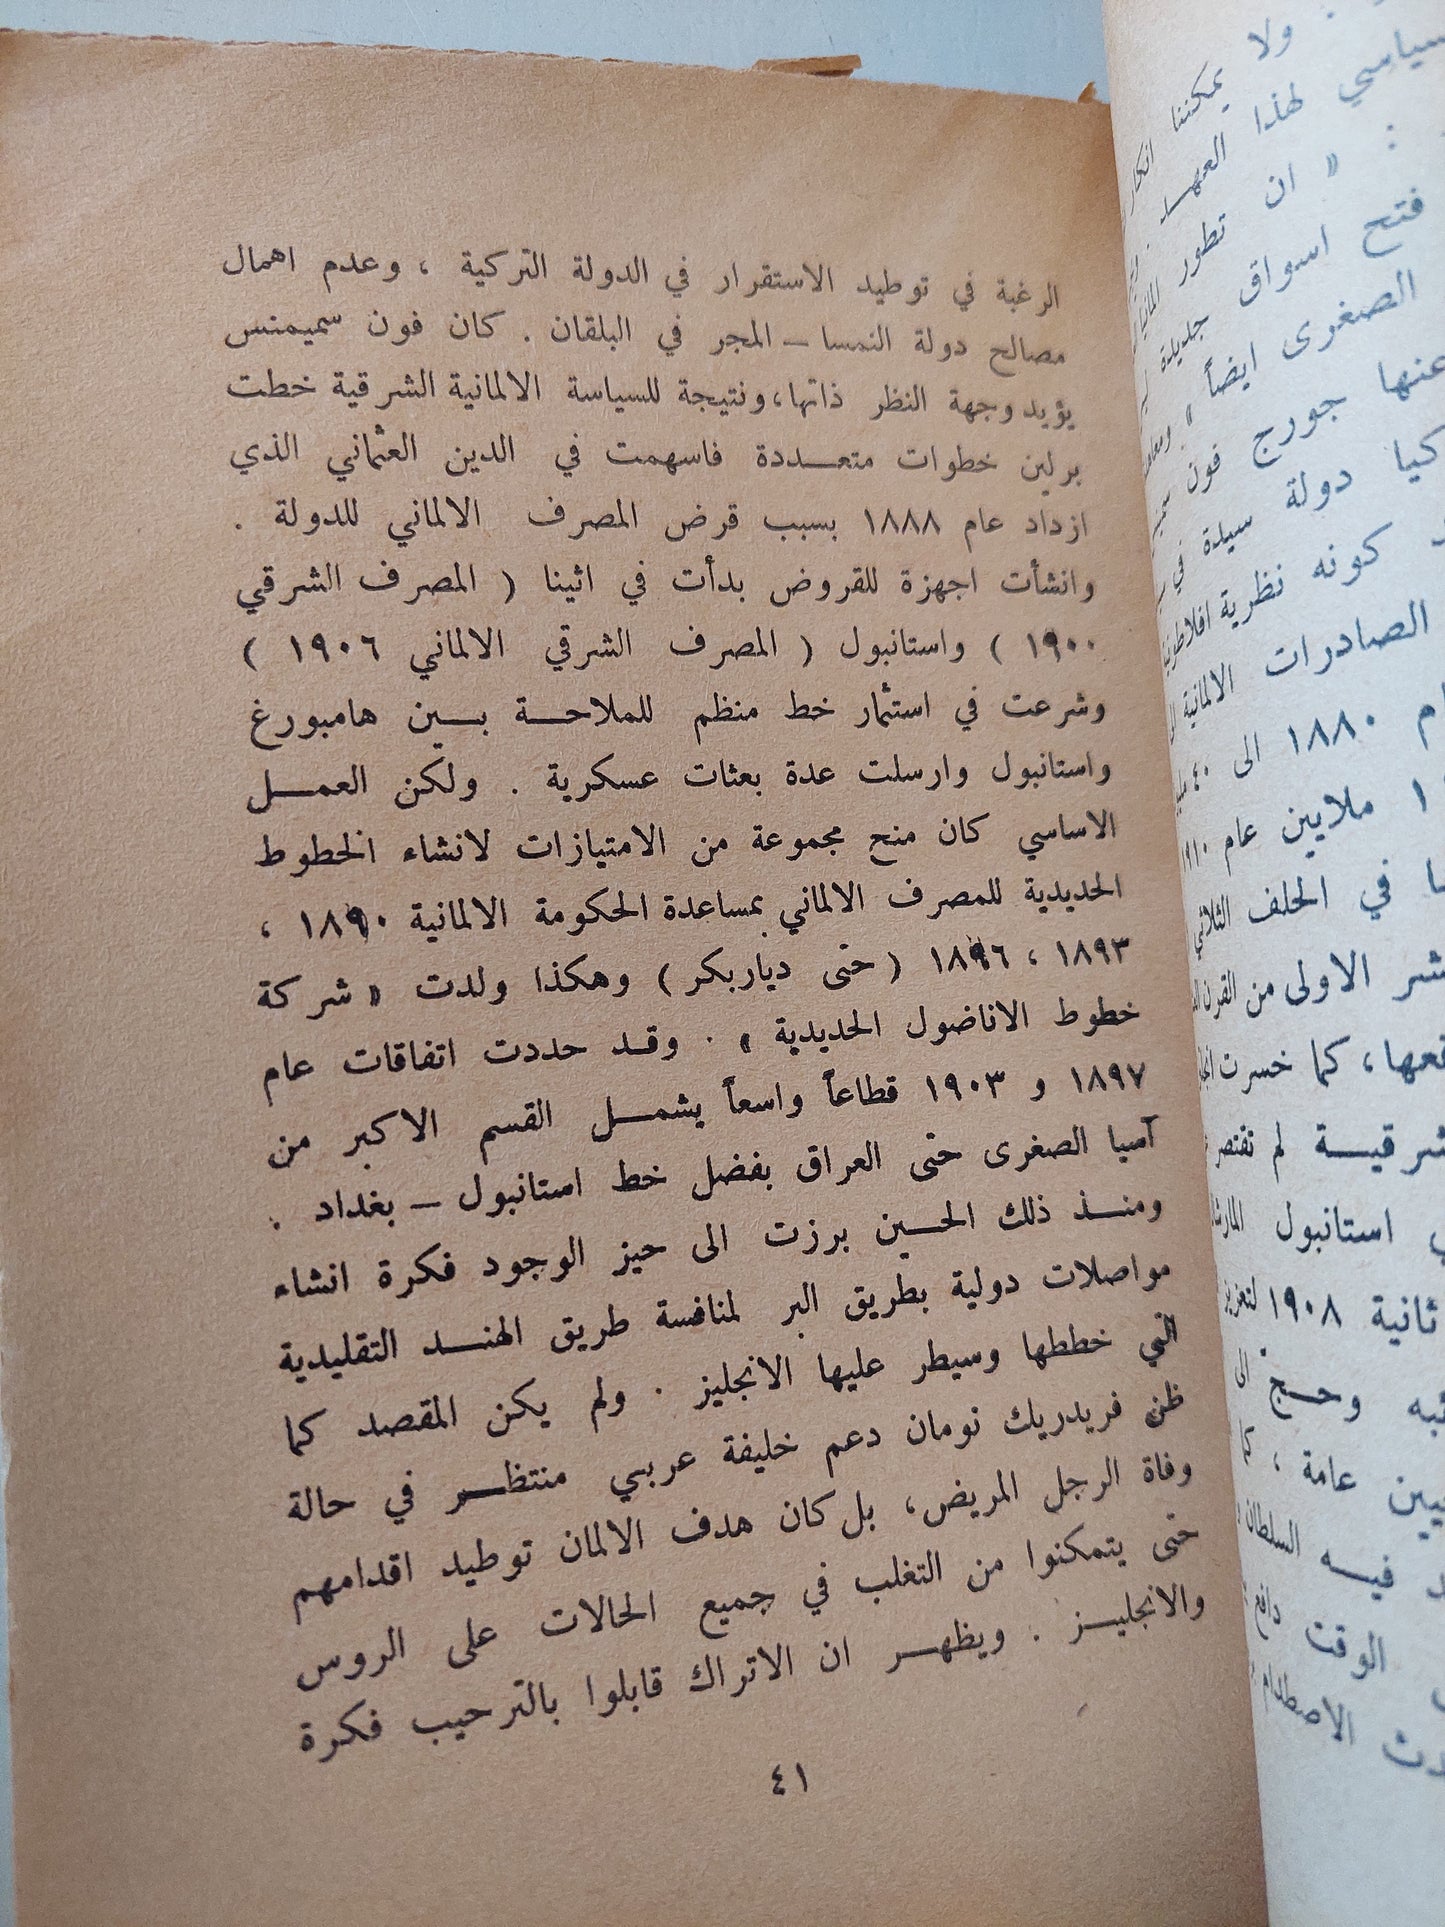 الرغبة في توطيد الاستقرار في الدولة التركية ، وعدم اهمال
مصالح دولة النمسا – المجر في البلقان . كان فون سميمنس
يؤيد وجهة النظر ذاتها، ونتيجة للسياسة الالمانية الشرقية خطت
برلين خطوات متعددة فاسهمت في الدين العثماني الذي
ازداد عام ١٨٨٨ بسبب قرض المصرف الالماني للدولة .
وانشأت اجهزة للقروض بدأت في اثينا ( المصرف الشرقي
١٩٠٠ ) واستانبول ( المصرف الشرقي الالماني ١٩٠٦ )
وشرعت في استثمار خط منظم للملاحة بين هامبورغ
واستانبول وارسلت عدة بعثات عسكرية . ولكن العمل
الاساسي كان منح مجموعة من الامتيازات لانشاء الخطوط
الحديدية للمصرف الالماني بمساعدة الحكومة الالمانية ١٨٩٠ ،
١٨٩٣ ، ١٨٩٦ ( حتى دياربكر ) وهكذا ولدت « شركة
خطوط الاناضول الحديدية » . وقد حددت اتفاقات عام
١٨٩٧ و ١٩٠٣ قطاعاً واسعاً يشمل القسم الاكبر من
آسيا الصغرى حتى العراق بفضل خط استانبول – بغداد .
ومنذ ذلك الحين برزت الى حيز الوجود فكرة انشاء
مواصلات دولية بطريق البر لمنافسة طريق الهند التقليدية
التي خططها وسيطر عليها الانجليز . ولم يكن المقصد كما
ظن فريدريك نومان دعم خليفة عربي منتظر في حالة
وفاة الرجل المريض، بل كان هدف الالمان توطيد اقدامهم
حتى يتمكنوا من التغلب في جميع الحالات على الروس
والانجليز . ويظهر ان الاتراك قابلوا بالترحيب فكرة
٤١
ولا يمكننا انكار
سياسي لهذا العهد
: « ان تطور
فتح اسواق جديدة
الصغرى ايضاً »
عنها جورج فون
دولة سيدة في
كونه نظرية
الصادرات الالمانية
١٨٨٠ الى ٤٠
ملايين عام
في الحلف الثلاثي
الاولى من القرن
كما خسرت
لم تقتصر
استانبول
ثانية ١٩٠٨
وحج الى
عامة ، كما
فيه السلطان
الوقت دافع
الاصطدام